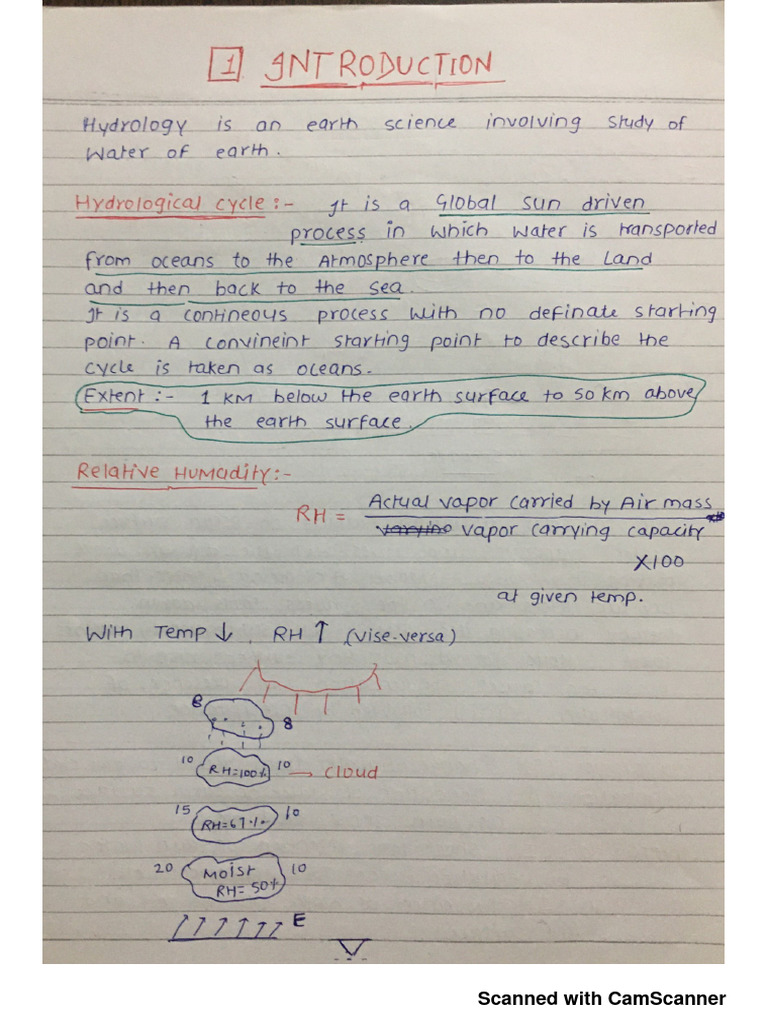 1 INTRODUCTION
Hydrology is an earth science involving study of
Water of earth.
Hydrological cycle :- It is a Global sun driven
process in which water is transported
from oceans to the Atmosphere then to the Land
and then back to the sea.
It is a contineous process with no definate starting
point. A convineint starting point to describe the
cycle is taken as oceans.
Extent :- 1 KM below the earth surface to 50 km above
the earth surface.
Relative Humadity :-
RH = Actual vapor carried by Air mass
vapor carrying capacity
X100
at given temp.
With Temp ↓, RH ↑ (vise-versa)
8 8
10 RH=100% 10 → cloud
15 RH=67% 10
20 Moist 10
RH= 50%
E
Scanned with CamScanner